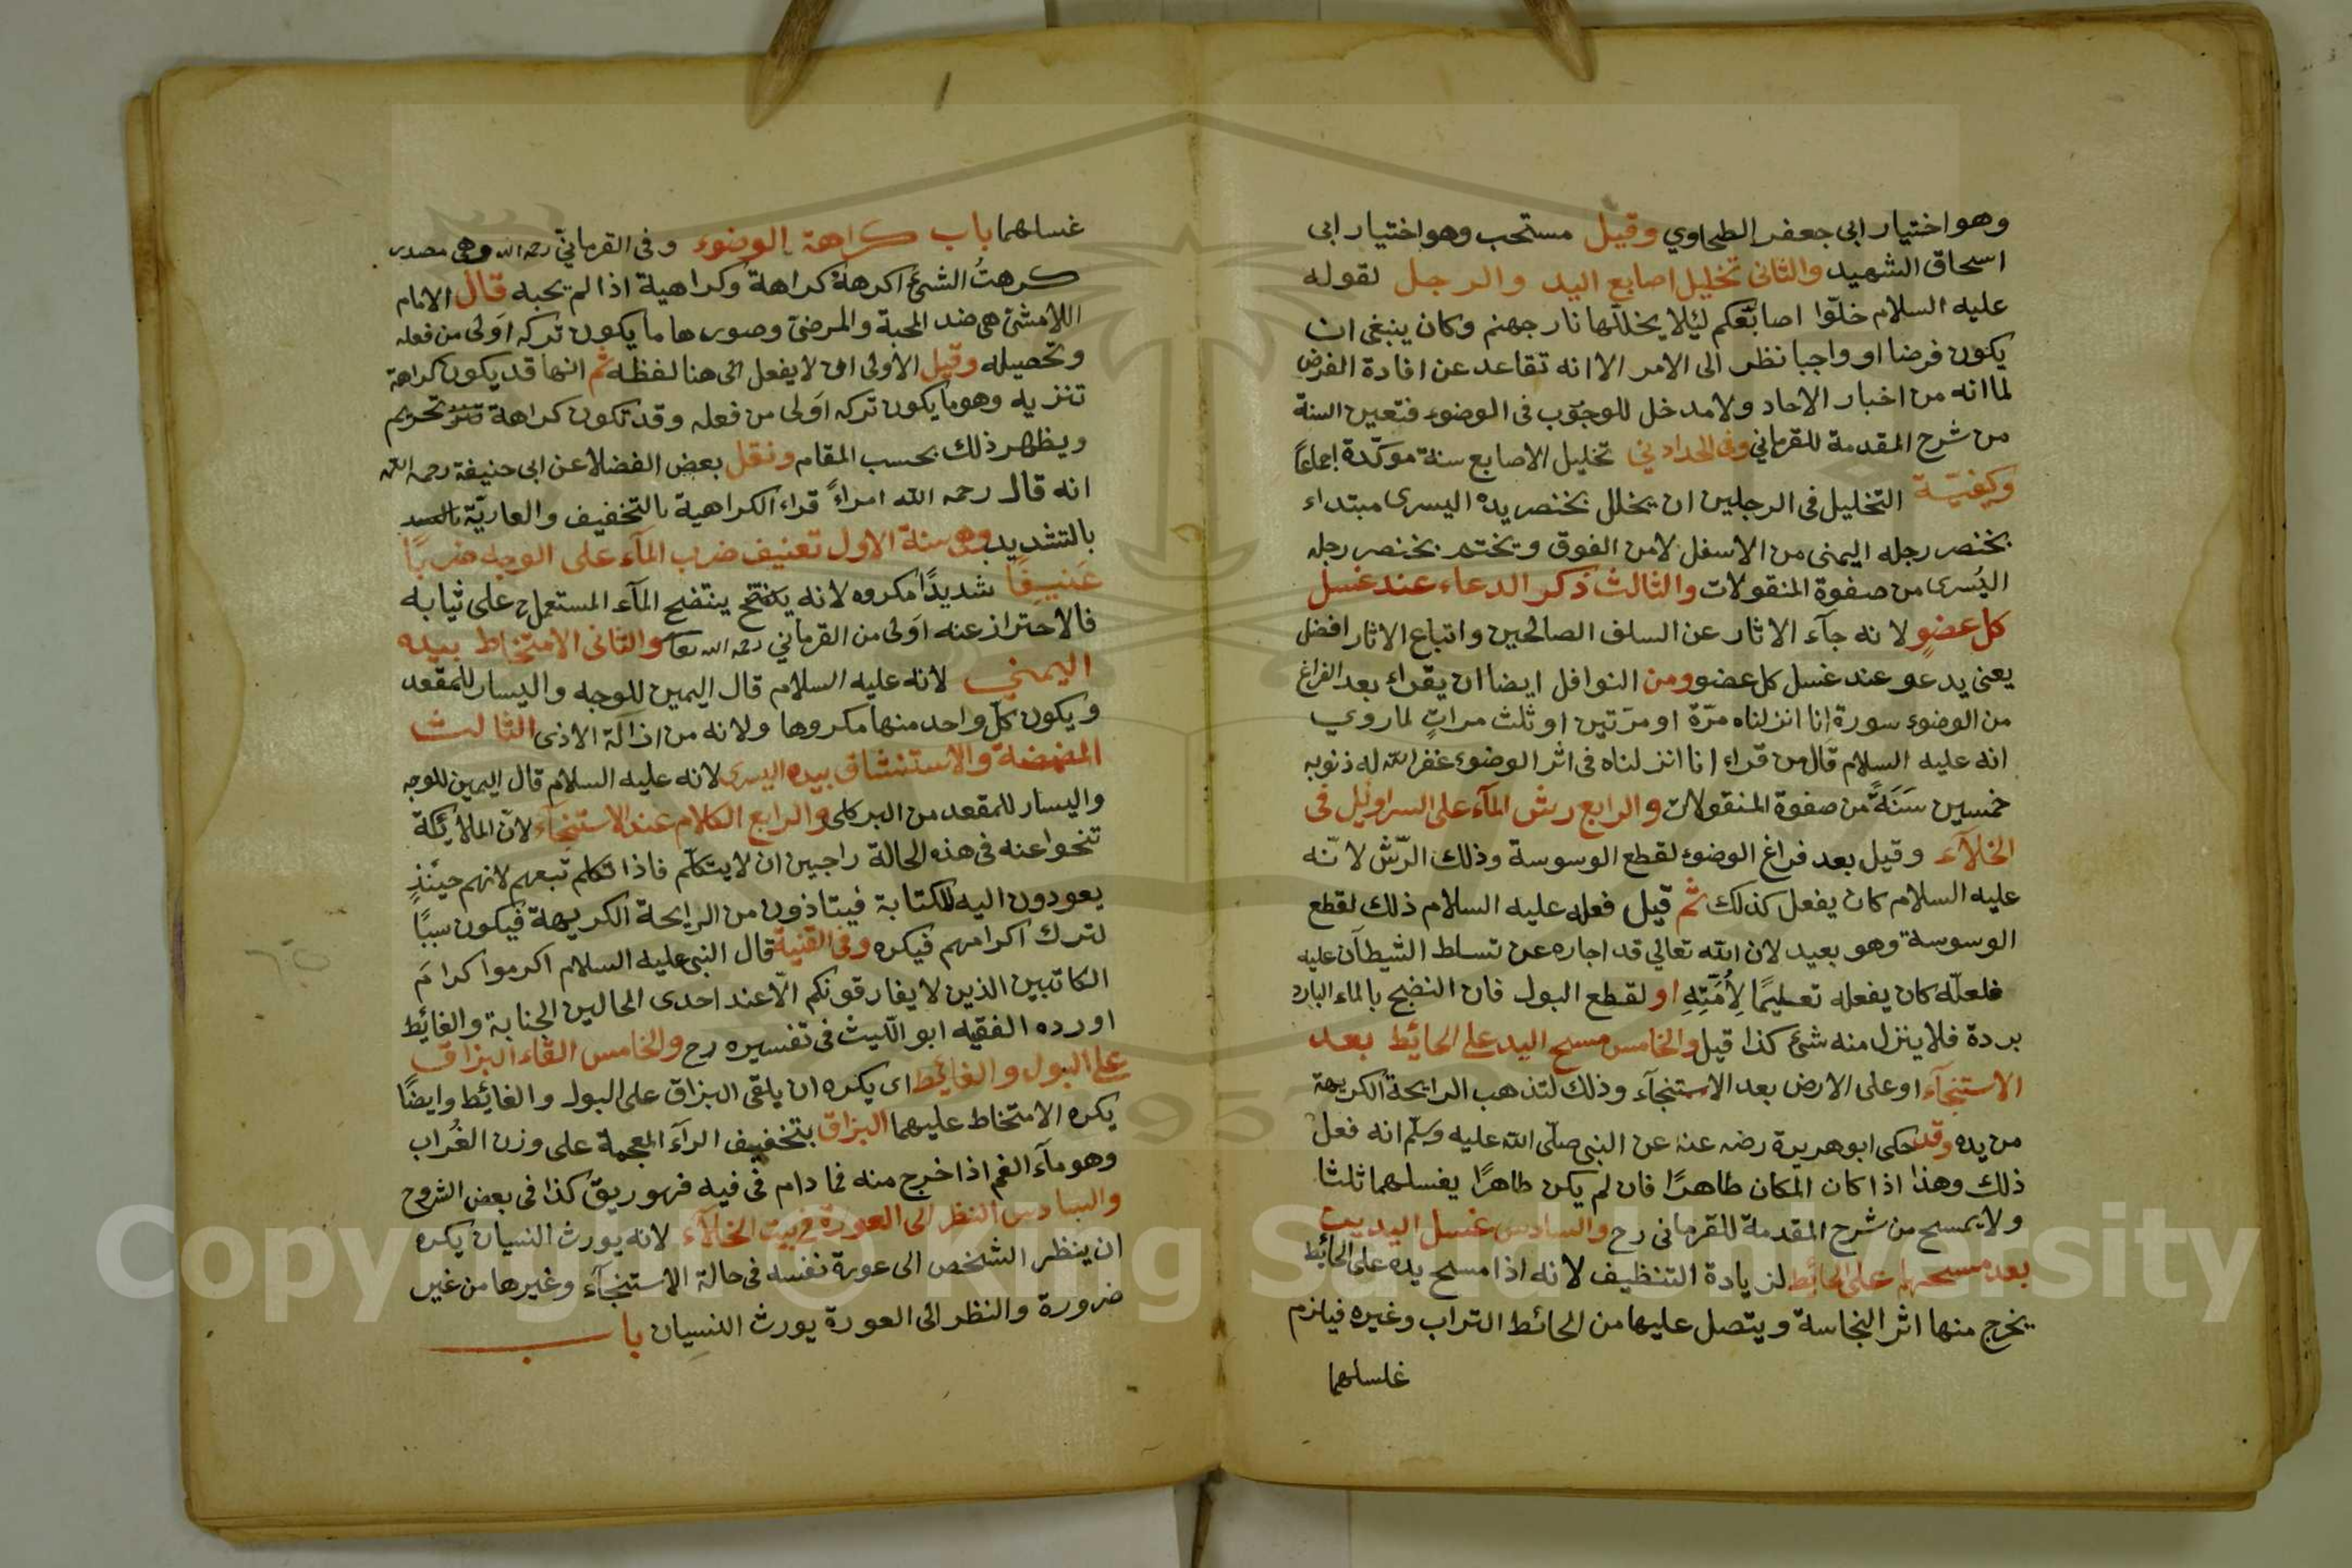 وهو اختيار ابى جعفر الطحاوي وقيل مستحب وهو اختيار ابى
اسحاق الشهيد والثانى تخليل اصابع اليد والرجل لقوله
عليه السلام خلّوا اصابعكم لئلا يخللها نار جهنم وكان ينبغى ان
يكون فرضا او واجبا نظر الى الامر الا انه تقاعد عن افادة الفرض
لما انه من اخبار الاحاد ولا مدخل للوجوب فى الوضوء فتعين السنة
من شرح المقدمة للقرماني وفى الحدادي تخليل الاصابع سنة موكّدة اجماعاً
وكيفيّة التخليل فى الرجلين ان يخلل بخنصر يده اليسرى مبتداء
بخنصر رجله اليمنى من الاسفل لا من الفوق ويختم بخنصر رجله
اليُسرى من صفوة المنقولات والثالث ذكر الدعاء عند غسل
كل عضوٍ لانه جآء الاثار عن السلف الصالحين واتباع الاثار افضل
يعنى يدعو عند غسل كل عضو ومن النوافل ايضا ان يقراء بعد الفراغ
من الوضوء سورة انا انزلناه مرّة او مرّتين او ثلث مراتٍ لما روي
انه عليه السلام قال من قراء انا انزلناه فى اثر الوضوء غفر الله له ذنوبه
خمسين سَنَةً من صفوة المنقولات والرابع رش المآء على السراويل فى
الخلآء وقيل بعد فراغ الوضوء لقطع الوسوسة وذلك الرّش لانّه
عليه السلام كان يفعل كذلك ثم قيل فعله عليه السلام ذلك لقطع
الوسوسة وهو بعيد لان الله تعالي قد اجاره عن تسلط الشيطان عليه
فلعلّه كان يفعله تعليمًا لِأُمَّتِهِ او لقطع البول فان النضح بالماء البارد
بردة فلا ينزل منه شئ كذا قيل والخامس مسح اليد على الحائط بعد
الاستنجآء او على الارض بعد الاستنجآء وذلك لتذهب الرايحة الكريهة
من يده وقد حكى ابو هريرة رضه عنه عن النبى صلّى الله عليه وسلّم انه فعل
ذلك وهذا اذا كان المكان طاهرًا فان لم يكن طاهرًا يغسلهما ثلثا
ولا يمسح من شرح المقدمة للقرمانى رح والسادس غسل اليدين
بعد مسحهما على الحائط لزيادة التنظيف لانه اذا مسح يده على الحائط
يخرج منها اثر النجاسة ويتصل عليها من الحائط التراب وغيره فيلزم
غسلهما
غسلهما باب كراهة الوضوء وفى القرمانيّ رحمه الله وهى مصدر
كرهتُ الشئ اكرهه كراهة وكراهية اذا لم يحبه قال الامام
اللامشى هى ضد المحبة والمرضىّ وصورها ما يكون تركه اَولى من فعله
وتحصيله وقيل الاولى ان لا يفعل الى هنا لفظه ثم انها قد يكون كراهة
تنزيه وهو ما يكون تركه اَولى من فعله وقد تكون كراهة تحريم
ويظهر ذلك بحسب المقام ونقل بعض الفضلا عن ابى حنيفة رحمه الله
انه قال رحمه الله امراءً قراء الكراهية بالتخفيف والعاريّة
بالتشديد وهى ستة الاول تعنيف ضرب المآء على الوجه ضربًا
عَنيفًا شديدًا مكروه لانه ينتضح المآء المستعمل على ثيابه
فالاحتراز عنه اَولى من القرماني رحمه الله تعالى والثانى الامتخاط بيده
اليمني لانه عليه السلام قال اليمين للوجه واليسار للمقعد
ويكون كلّ واحد منها مكروها ولانه من ازالة الاذى الثالث
المضمضة والاستنشاق بيده اليسرى لانه عليه السلام قال اليمين للوجه
واليسار للمقعد من البركلى والرابع الكلام عند الاستنجآء لانّ الملائكة
تنحوا عنه فى هذه الحالة راجين ان لا يتكلّم فاذا تكلم تبعهم لانهم حينئذٍ
يعودون اليه للكتابة فيتاذون من الرايحة الكريهة فيكون سببًا
لترك اكرامهم فيكره وفى القنية قال النبى عليه السلام اكرموا كرامَ
الكاتبين الذين لا يفارقونكم الّا عند احدى الحالين الجنابة والغائط
اورده الفقيه ابو الليث فى تفسيره رح والخامس القاء البزاق
على البول والغائط اى يكره ان يلقى البزاق على البول والغائط وايضًا
يكره الامتخاط عليهما البزاق بتخفيف الرآء المعجمة على وزن الغُراب
وهو مآء الفم اذا خرج منه فما دام فى فيه فهو ريق كذا فى بعض الشروح
والسادس النظر الى العورة فى بيت الخلآء لانه يورث النسيان يكره
ان ينظر الشخص الى عورة نفسه فى حالة الاستنجآء وغيرها من غير
ضرورة والنظر الى العورة يورث النسيان باب
Copyright © King Saud University
1957